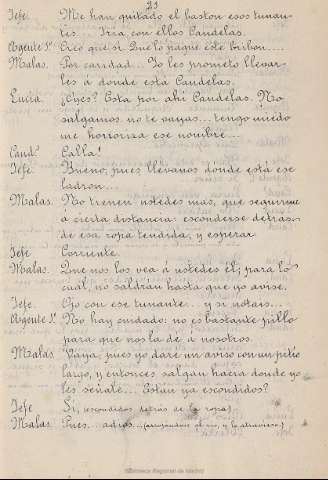 23
Jefe. Me han quitado el baston esos tunan-
tes... Iría con ellos Candelas.
Agente 1º Creo que sí. Que lo pague este bribon....
Malas. Por caridad... Yo les prometo llevar-
les á donde está Candelas.
Luisa. ¿Oyes? Está por ahí Candelas. No
salgamos. no te vayas... tengo miedo
me horroriza ese nombre...
Candˢ Calla!
Jefe. Bueno, pues llévanos donde está ese
ladron...
Malas. No tienen ustedes mas, que seguirme
á cierta distancia: esconderse detras
de esa ropa tendida, y esperar
Jefe Corriente.
Malas. Que nos los vea á ustedes él; para lo
cual no saldrán hasta que yo avise.
Jefe. Ojo con ese tunante.. y si notais...
Agente 1º No hay cuidado: no es bastante pillo
para que nos la dé a nosotros.
Malas. Vaya, pues yo daré un aviso con un pito
largo, y entonces salgan hacia donde yo
les señale... Estan ya escondidos?
Jefe Si, (escondidos detrás de la ropa)
Malas. Pues.. adios... (aproximándose al rio, y lo atraviesa)
Biblioteca Regional de Madrid